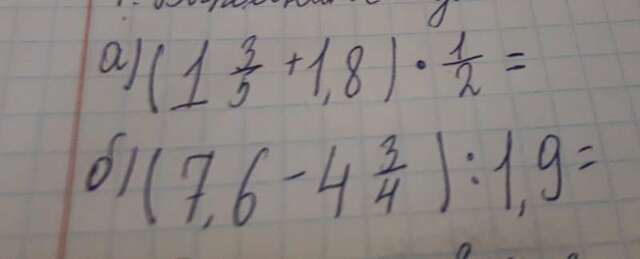 а) (1 3/5 + 1,8) · 1/2 =
б) (7,6 - 4 3/4) : 1,9 =